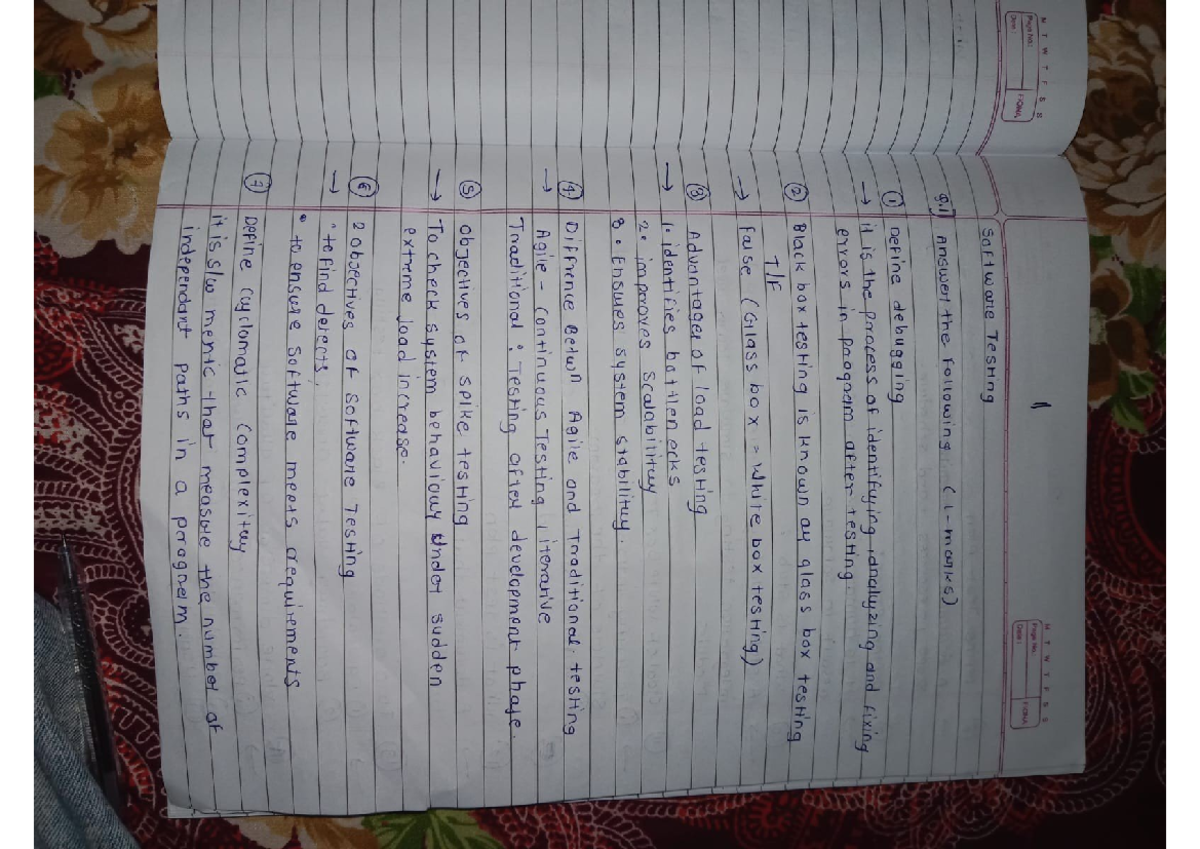 M T W T F S S
Page No.:
Date:
YOUVA
M T W T F S S
Page No.:
Date:
YOUVA
Software Testing
Q.1] Answer the following (1-marks)
① Define debugging
→ it is the process of identifying, analyzing and fixing
errors in progrem after testing.
② Black box testing is known as glass box testing
T/F
→ False (Glass box = White box testing)
③ Advantages of load testing
→ 1. identifies bottlenecks
2. improves scalability
3. Ensures system stability.
④ Diffrence Betwn Agile and Traditional testing
→ Agile - Continuous Testing, iterative
Traditional : Testing after development phase.
⑤ objectives of spike testing
→ To check system behaviour under sudden
extreme load increase.
⑥ 2 objectives of software Testing
→ • to find defects,
• to ensure software meets requirements
⑦ Define cyclomatic complexity
it is s/w metric that measure the number of
independant paths in a progrem.